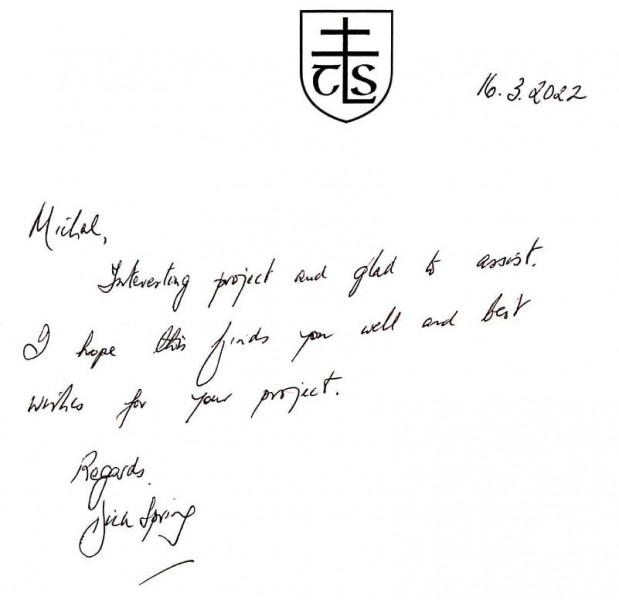 CLS
16.3.2022
Michal,
Interesting project and glad to assist.
I hope this finds you well and best
wishes for your project.
Regards.
Dick Spring